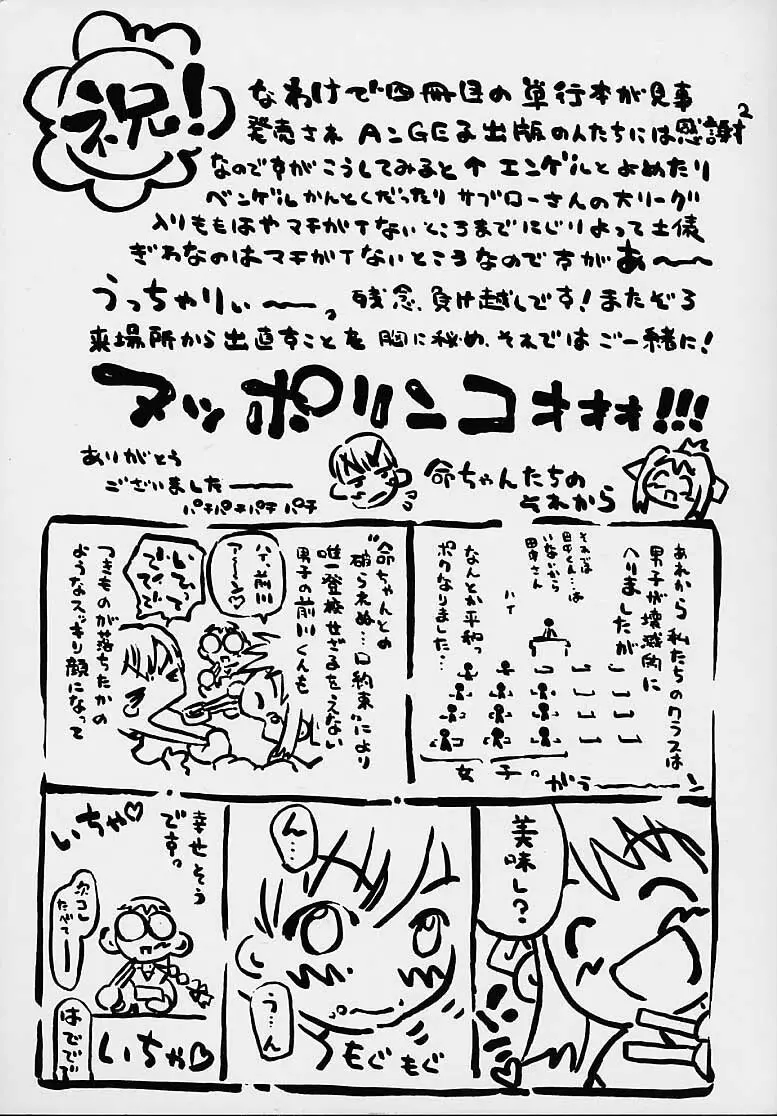 祝!
なわけで四冊目の単行本が見事
発売され AンGEる出版の人たちには感謝²
なのですがこうしてみると↑エンゲルとよめたり
ベンゲルかんとくだったり サブローさんの大リーグ
入りももはやマチがイないところまでにじりよって土俵
ぎわなのはマチがイないところなのですがあ〜〜
うっちゃりぃーーっ 残念、負け越しです!またぞろ
来場所から出直すことを胸に秘め、それではご一緒に!
マッポリンコォォォ!!!
ありがとう
ございましたーーー
パチパチパチ パチ
命ちゃんたちの
それから
あれから私たちのクラスは
男子が壊滅的に
へりましたが
それでは
田中くん…は
いないから
田中さん
ハイ
なんとか平和っ
ポクなりました…
女子っ
がらーーーン
“命ちゃんとの
破られぬ…口約束”により
唯一登校せざるをえない
男子の前川くんも
ハイ、前川
ア〜〜ン♡
いてって
でてて
でで
つきものが落ちたかの
ようなスッキリ顔になって
美味し?
ん…
う…ん
もぐもぐ
幸せそう
ですっ
いちゃ♡
次コレ
たべてー
はででで
いちゃ♡